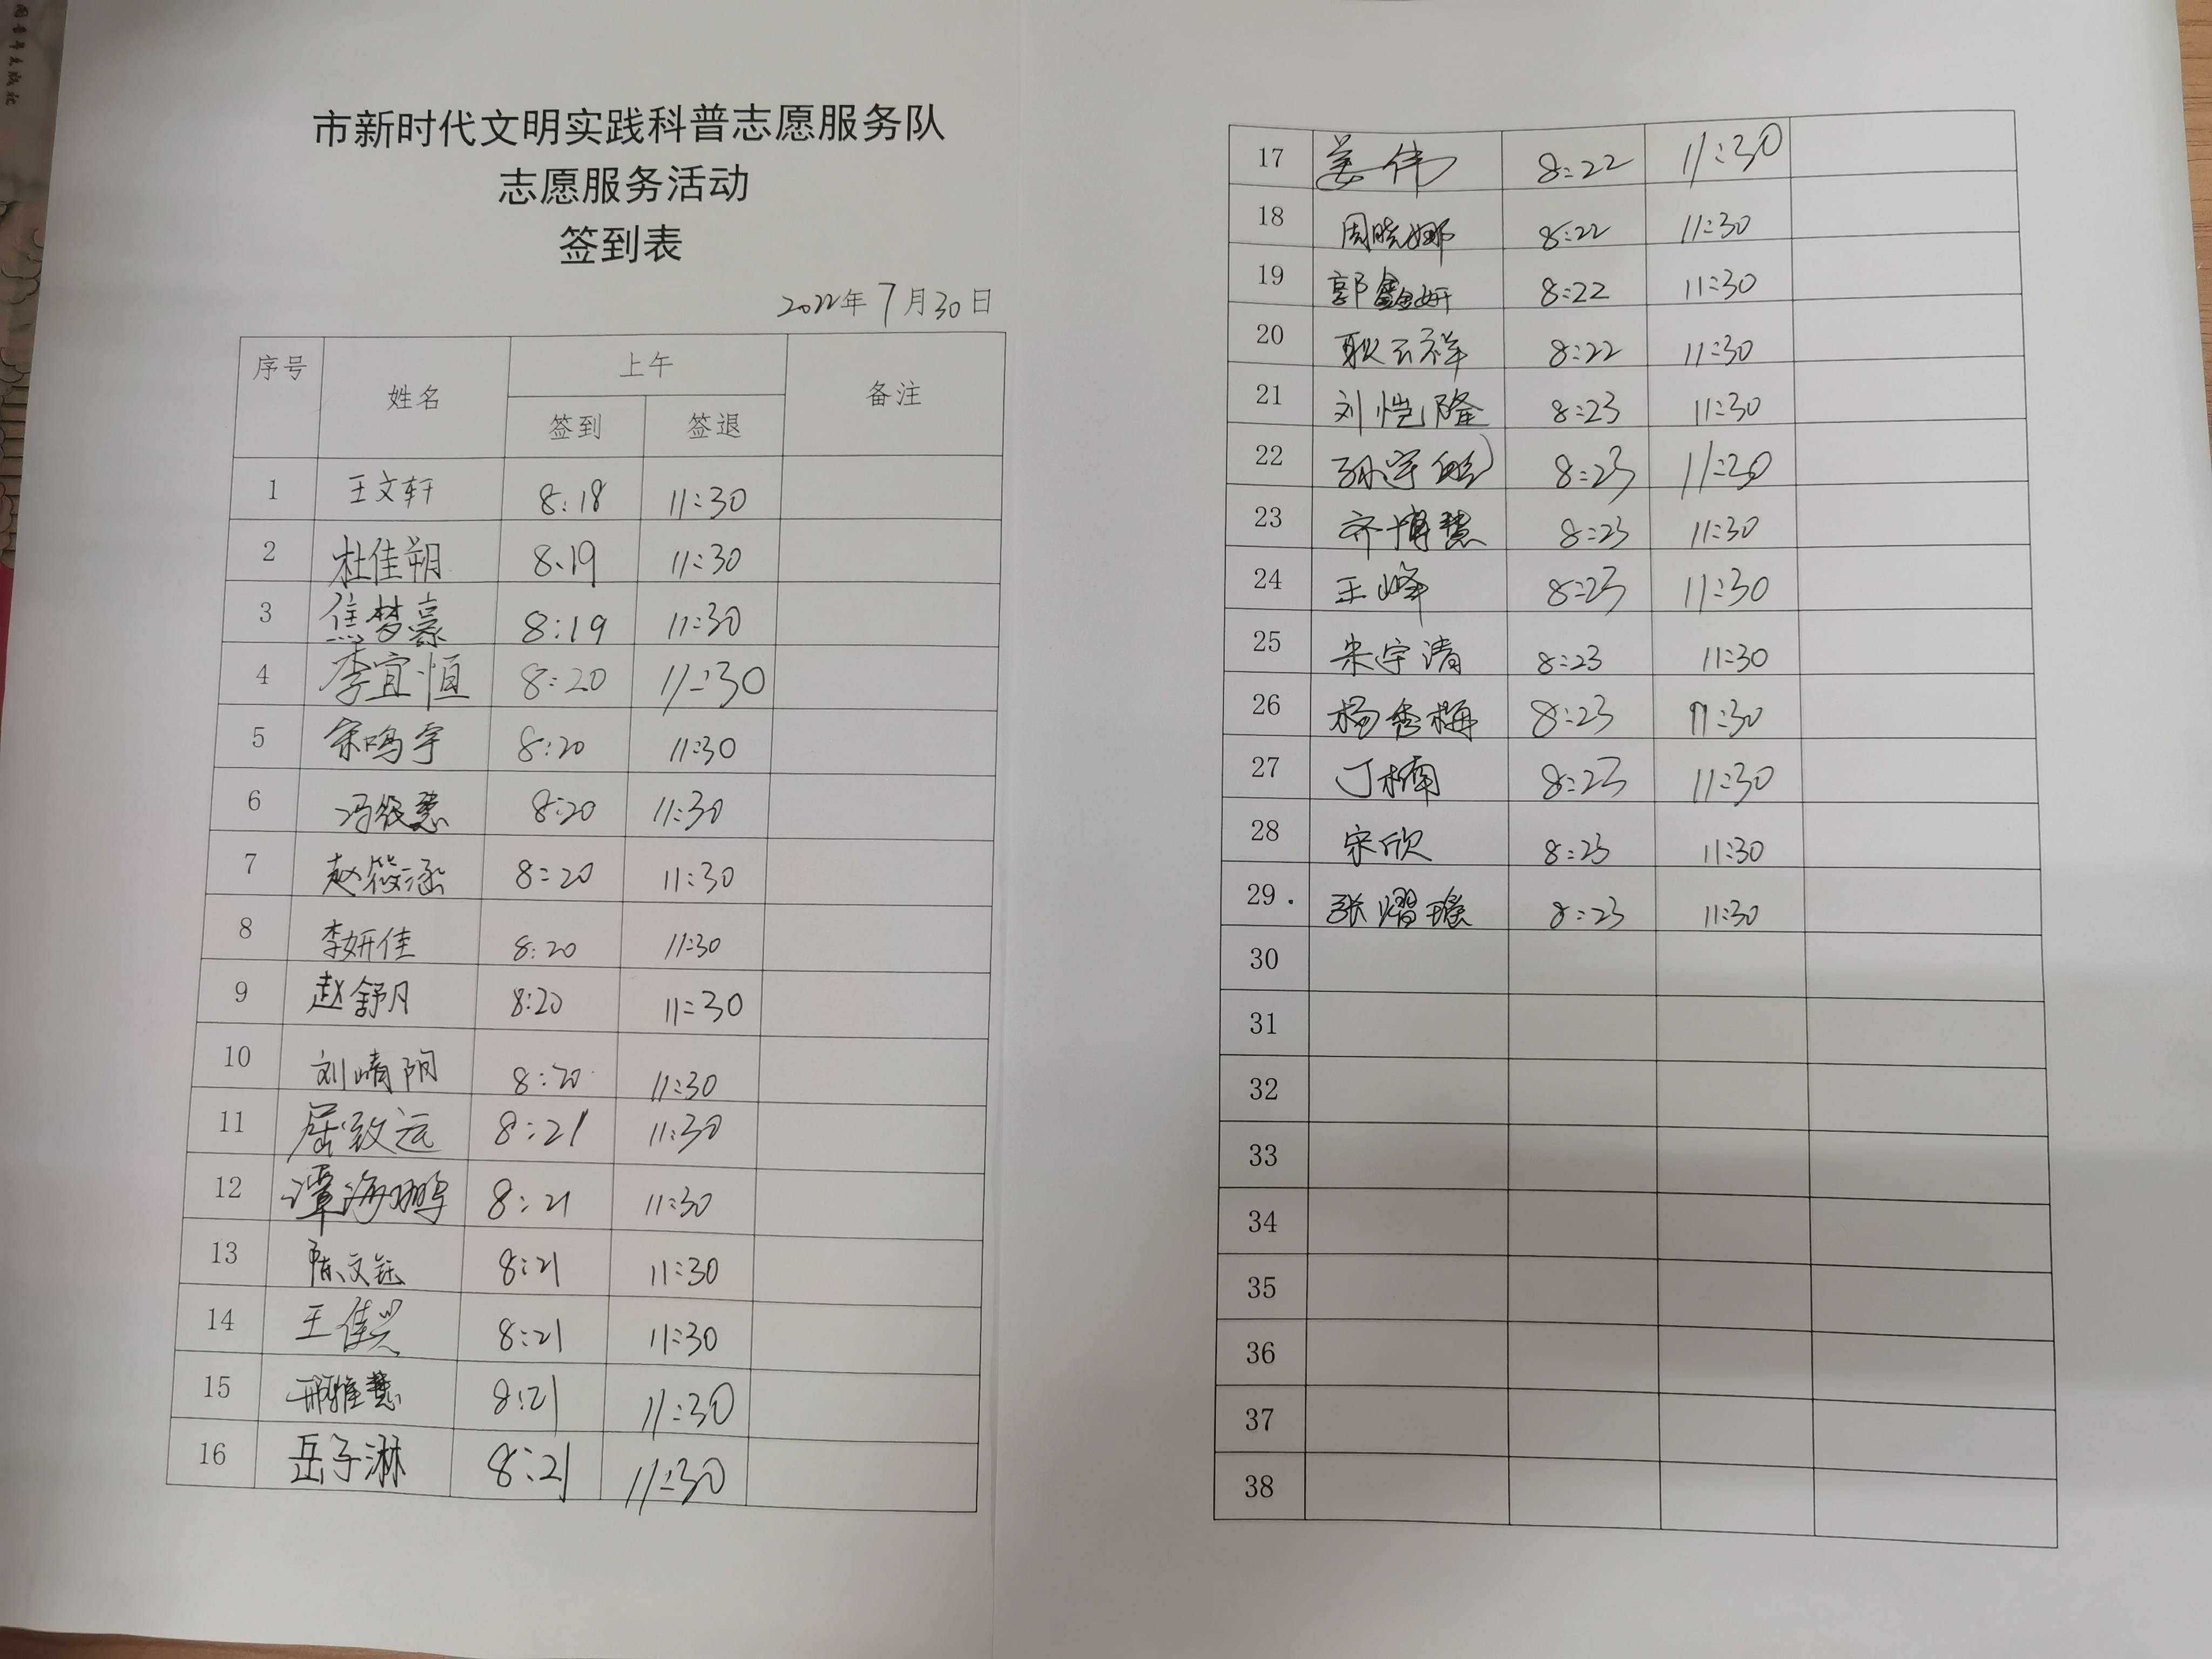 市新时代文明实践科普志愿服务队
志愿服务活动
签到表
2022年7月30日
序号 姓名 上午 备注
签到 签退
1 王文轩 8:18 11:30
2 杜佳朔 8:19 11:30
3 焦梦豪 8:19 11:30
4 李宜恒 8:20 11:30
5 宋鸣宇 8:20 11:30
6 8:20 11:30
7 赵筱涵 8:20 11:30
8 李妍佳 8:20 11:30
9 赵舒月 8:20 11:30
10 刘晴阳 8:20 11:30
11 屈致远 8:21 11:30
12 谭海鹏 8:21 11:30
13 陈文钰 8:21 11:30
14 王佳兴 8:21 11:30
15 邢雅慧 8:21 11:30
16 岳子淋 8:21 11:30
17 姜伟 8:22 11:30
18 周晓娜 8:22 11:30
19 郭鑫妍 8:22 11:30
20 耿云祥 8:22 11:30
21 刘恺隆 8:23 11:30
22 8:23 11:30
23 齐博慧 8:23 11:30
24 王峰 8:23 11:30
25 宋宇清 8:23 11:30
26 杨秀梅 8:23 11:30
27 丁楠 8:23 11:30
28 宋欣 8:23 11:30
29. 张熠瑶 8:23 11:30
30
31
32
33
34
35
36
37
38